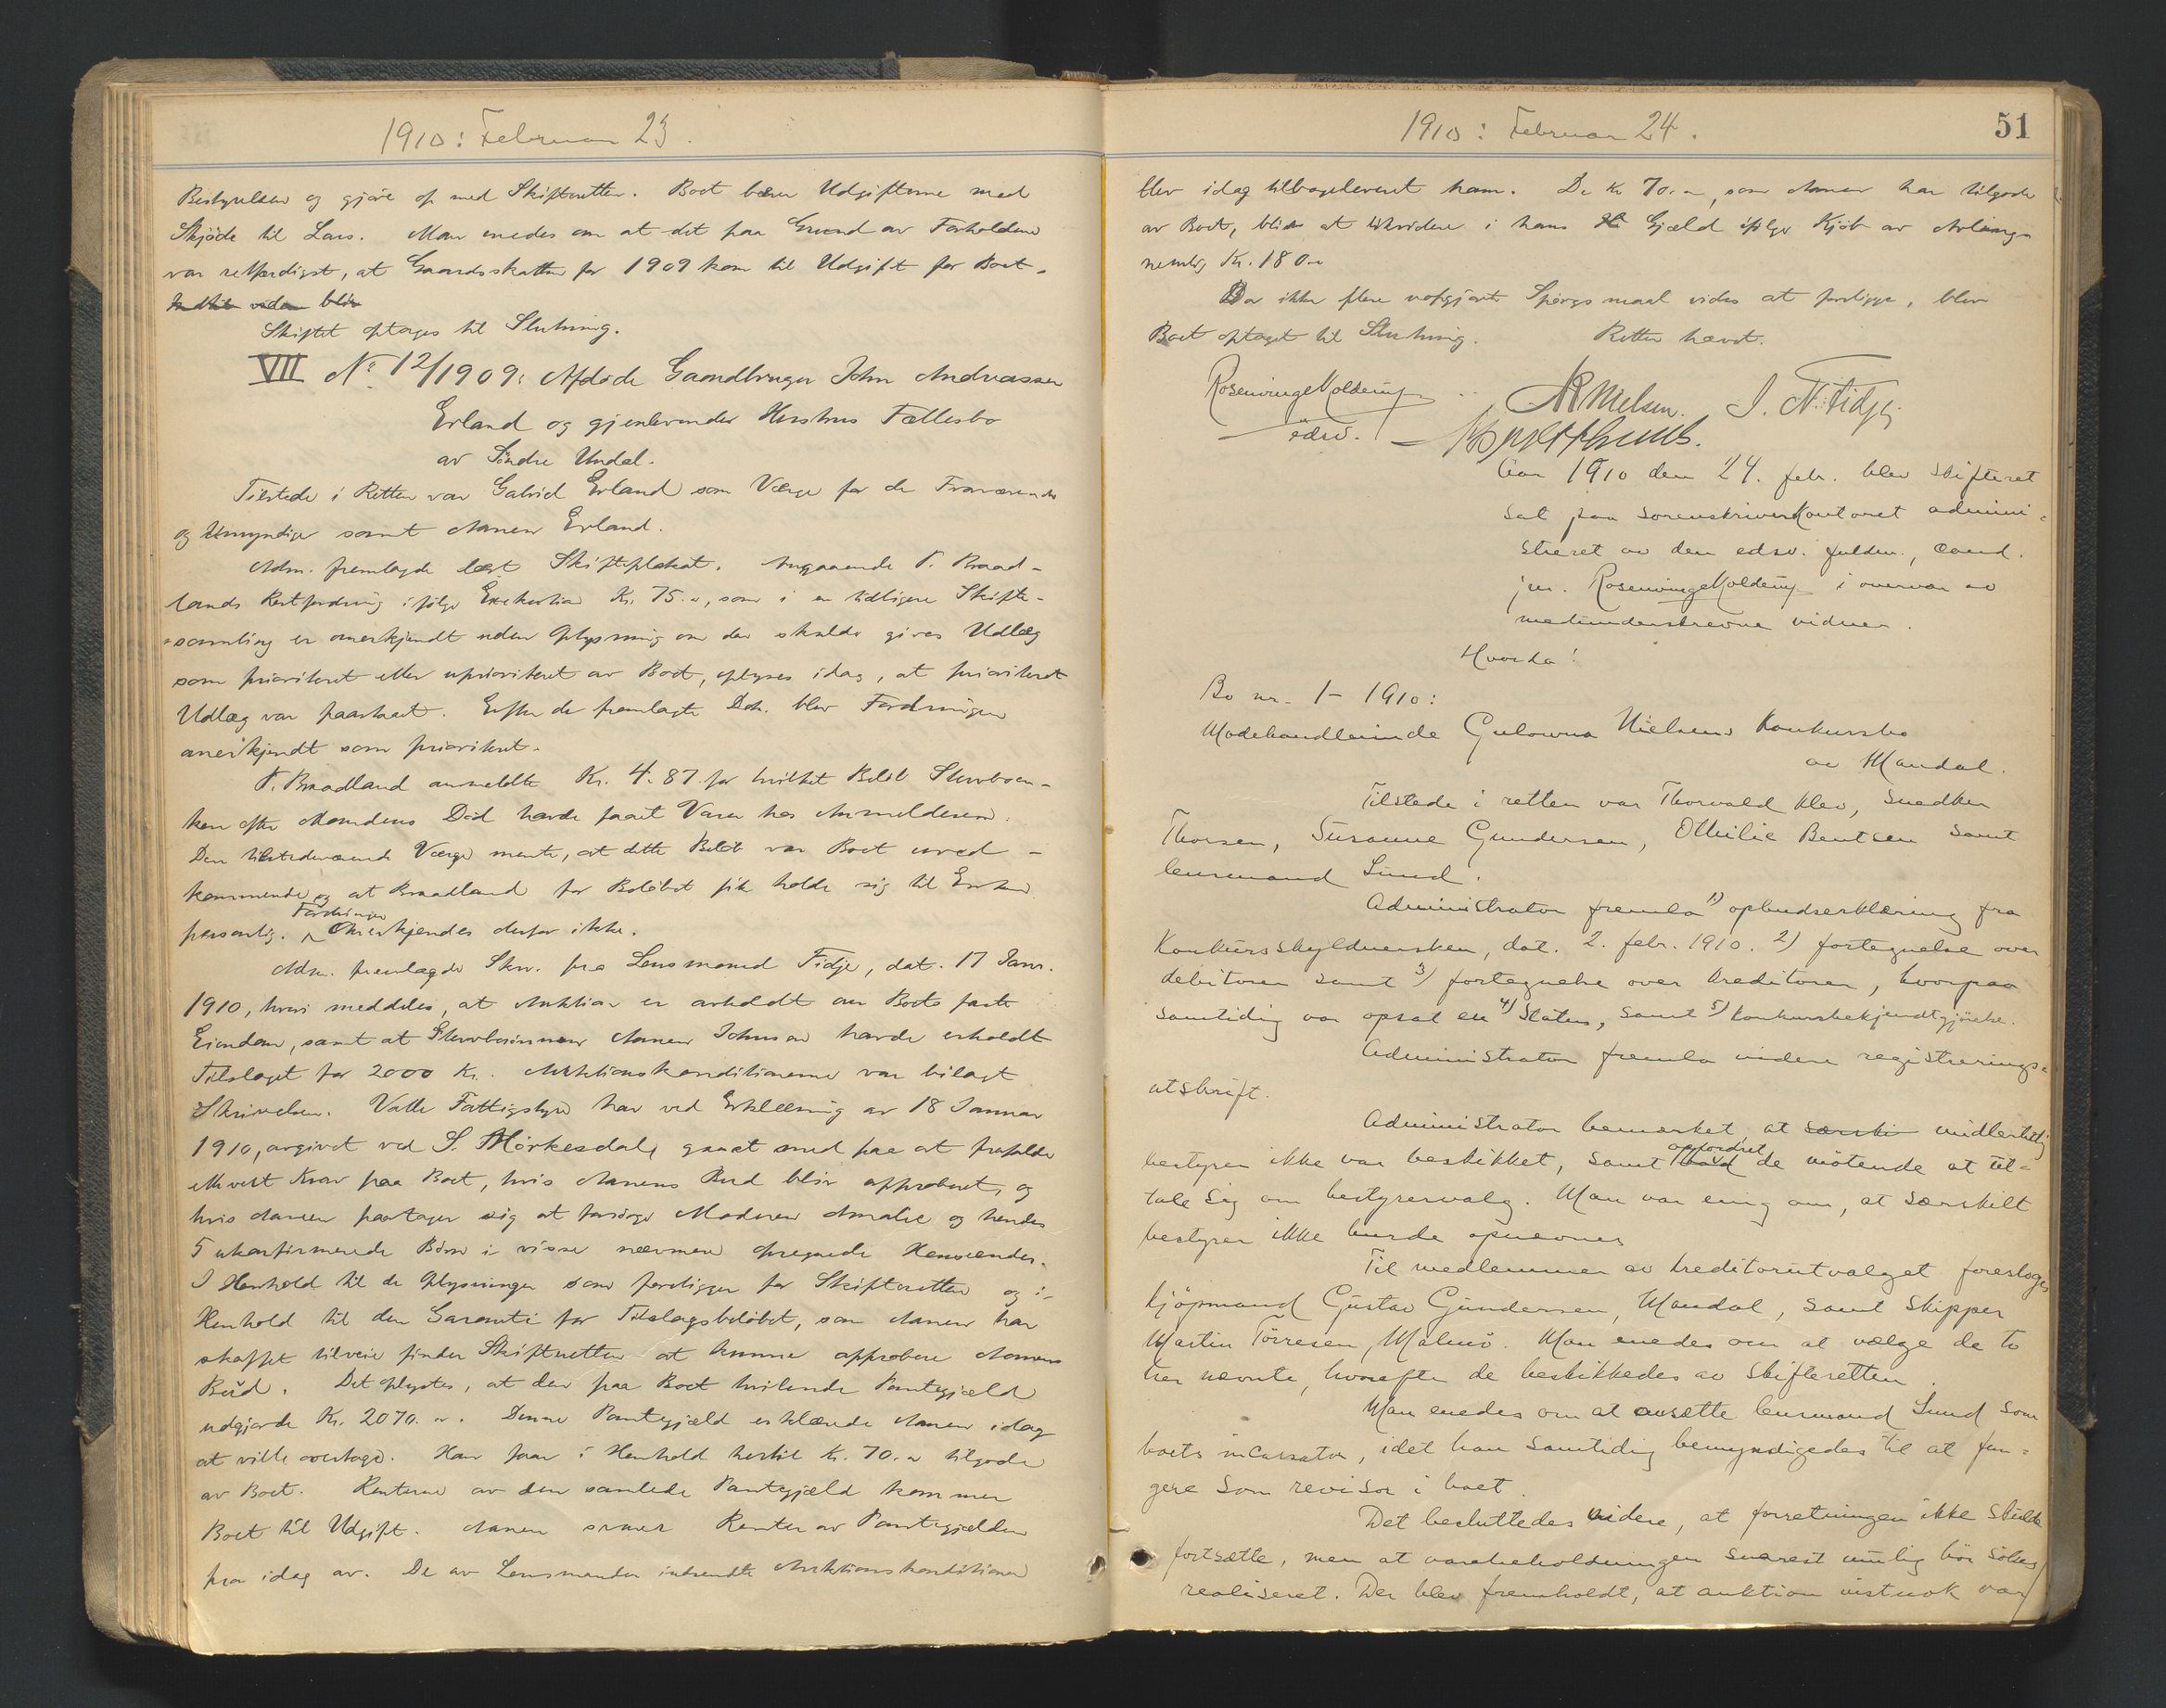 1910: Februar 23.
Bestyrelsen og gjøre op med Skifteretten. Boet bærer Udgifterne med
Skjøde til Lars. Man enedes om at det paa Grund av Forholdene
var retfærdigst, at Gaardsskatten for 1909 kom til Udgift for Boet.
Skiftet optages til Slutning.
VII No 12/1909: Afdøde Gaardbruger John Andreassen
Erland og gjenlevende Hustrus Fællesbo
av Søndre Undal.
Tilstede i Retten var Gabriel Erland som Værge for de Fraværende
og Umyndige samt Aanen Erland.
Adm. fremlagde læst Skifteplakat. Angaaende T. Braad-
lands Restfordring ifølge Exekution Kr. 75.", som i en tidligere Skifte-
samling er anerkjendt uden Oplysning om der skulde gives Udlæg
som prioriteret eller uprioriteret av Boet, oplyses idag, at prioriteret
Udlæg var paastaaet. Efter de fremlagte Dok. blev Fordringen
anerkjendt som prioritert.
T. Braadland anmeldte Kr. 4.87 for hvilket Beløb Stervboen-
ken efter Mandens Død havde faaet Varer hos Anmelderen.
Den tilstedeværende Værge mente, at dette Beløb var Boet uved-
kommende og at Braadland for Beløbet fik holde sig til Enken
personlig. Fordringen Anerkjendes derfor ikke.
Adm. fremlagde Skr. fra Lensmand Fidje, dat. 17 Janr.
1910, hvori meddeles, at Auktion er avholdt over Boets faste
Eiendom, samt at Stervbosønnen Aanen Johnsen havde erholdt
Tilslaget for 2000 Kr. Auktionskonditionerne var bilagt
Skrivelsen. Valle Fattigstyre har ved Erklæring av 18 Januar
1910, avgivet ved S. Mörkesdal, gaaet med paa at frafalde
ethvert Krav paa Boet, hvis Aanens Bud blir approberet, og
hvis Aanen paatager sig at forsørge Moderen Amalie og hendes
5 ukonfirmerede Børn i visse nærmere opregnede Henseender.
I Henhold til de Oplysninger som foreligger for Skifteretten og i
Henhold til den Garanti for Tilslagsbeløbet, som Aanen har
skaffet tilveie finder Skifteretten at kunne approbere Aanens
Bud. Det oplystes, at den paa Boet hvilende Pantegjæld
udgjorde Kr. 2070.". Denne Pantegjæld erklærede Aanen idag
at ville overtage. Han faar i Henhold hertil Kr. 70." tilgode
av Boet. Renterne av den samlede Pantegjæld kommer
Boet til Udgift. Aanen svarer Renter av Pantegjælden
fra idag av. De av Lensmanden indsendte Auktionskonditioner
1910: Februar 24.
51
blev idag tilbageleveret ham. De Kr 70.", som Aanen har tilgode
av Boet, blir at likvidere i hans Gjæld ifølge Kjøb av Avlingen
nemlig Kr. 180."
Da ikke flere uopgjorte Spørgsmaal vides at foreligge, blev
Boet optaget til Slutning. Retten hævet.
Rosenvinge Kolderup
edsv.
Nielsen. J. N. Fidje.
Aar 1910 den 24. febr. blev skifteret
sat paa sorenskriverkontoret admini-
streret av den edsv. fuldm., cand.
jur. Rosenvinge Kolderup i overvær av
medunderskrevne vidner.
Hvorda!
Bo nr. 1- 1910:
Modehandlerinde Gulowna Nielsens Konkursbo
av Mandal.
Tilstede i retten var Thorvald Klev, Snedker
Thorsen, Susanne Gundersen, Othilie Bentsen samt
lensmand Lund.
Administrator fremla 1) opbudserklæring fra
Konkursskyldnersken, dat. 2. febr. 1910. 2) fortegnelse over
debitorer samt 3) fortegnelse over kreditorer, hvorpaa
samtidig var opsat en 4) Status, samt 5) konkursbekjendtgjörelse.
Administrator fremla videre registrerings-
utskrift.
Administrator bemerket at særski midlertidig
bestyrer ikke var beskikket, samt opfordret de mötende at ut-
tale sig om bestyrervalg. Man var enig om, at særskilt
bestyrer ikke burde opnævnes
Til medlemmer av kreditorutvalget foresloges
kjöpmand Gustav Gundersen, Mandal, samt skipper
Martin Törresen, Malmö. Man enedes om at vælge de to
her nævnte, hvorefter de beskikkedes av skifteretten.
Man enedes om at ansætte lensmand Lund som
boets incassator, idet han samtidig bemyndigedes til at fun-
gere som revisor i boet.
Det besluttedes videre, at forretningen ikke skulde
fortsætte, men at varebeholdningen snarest mulig bör sökes
realiseret. Der blev fremholdt, at auktion vistnok var